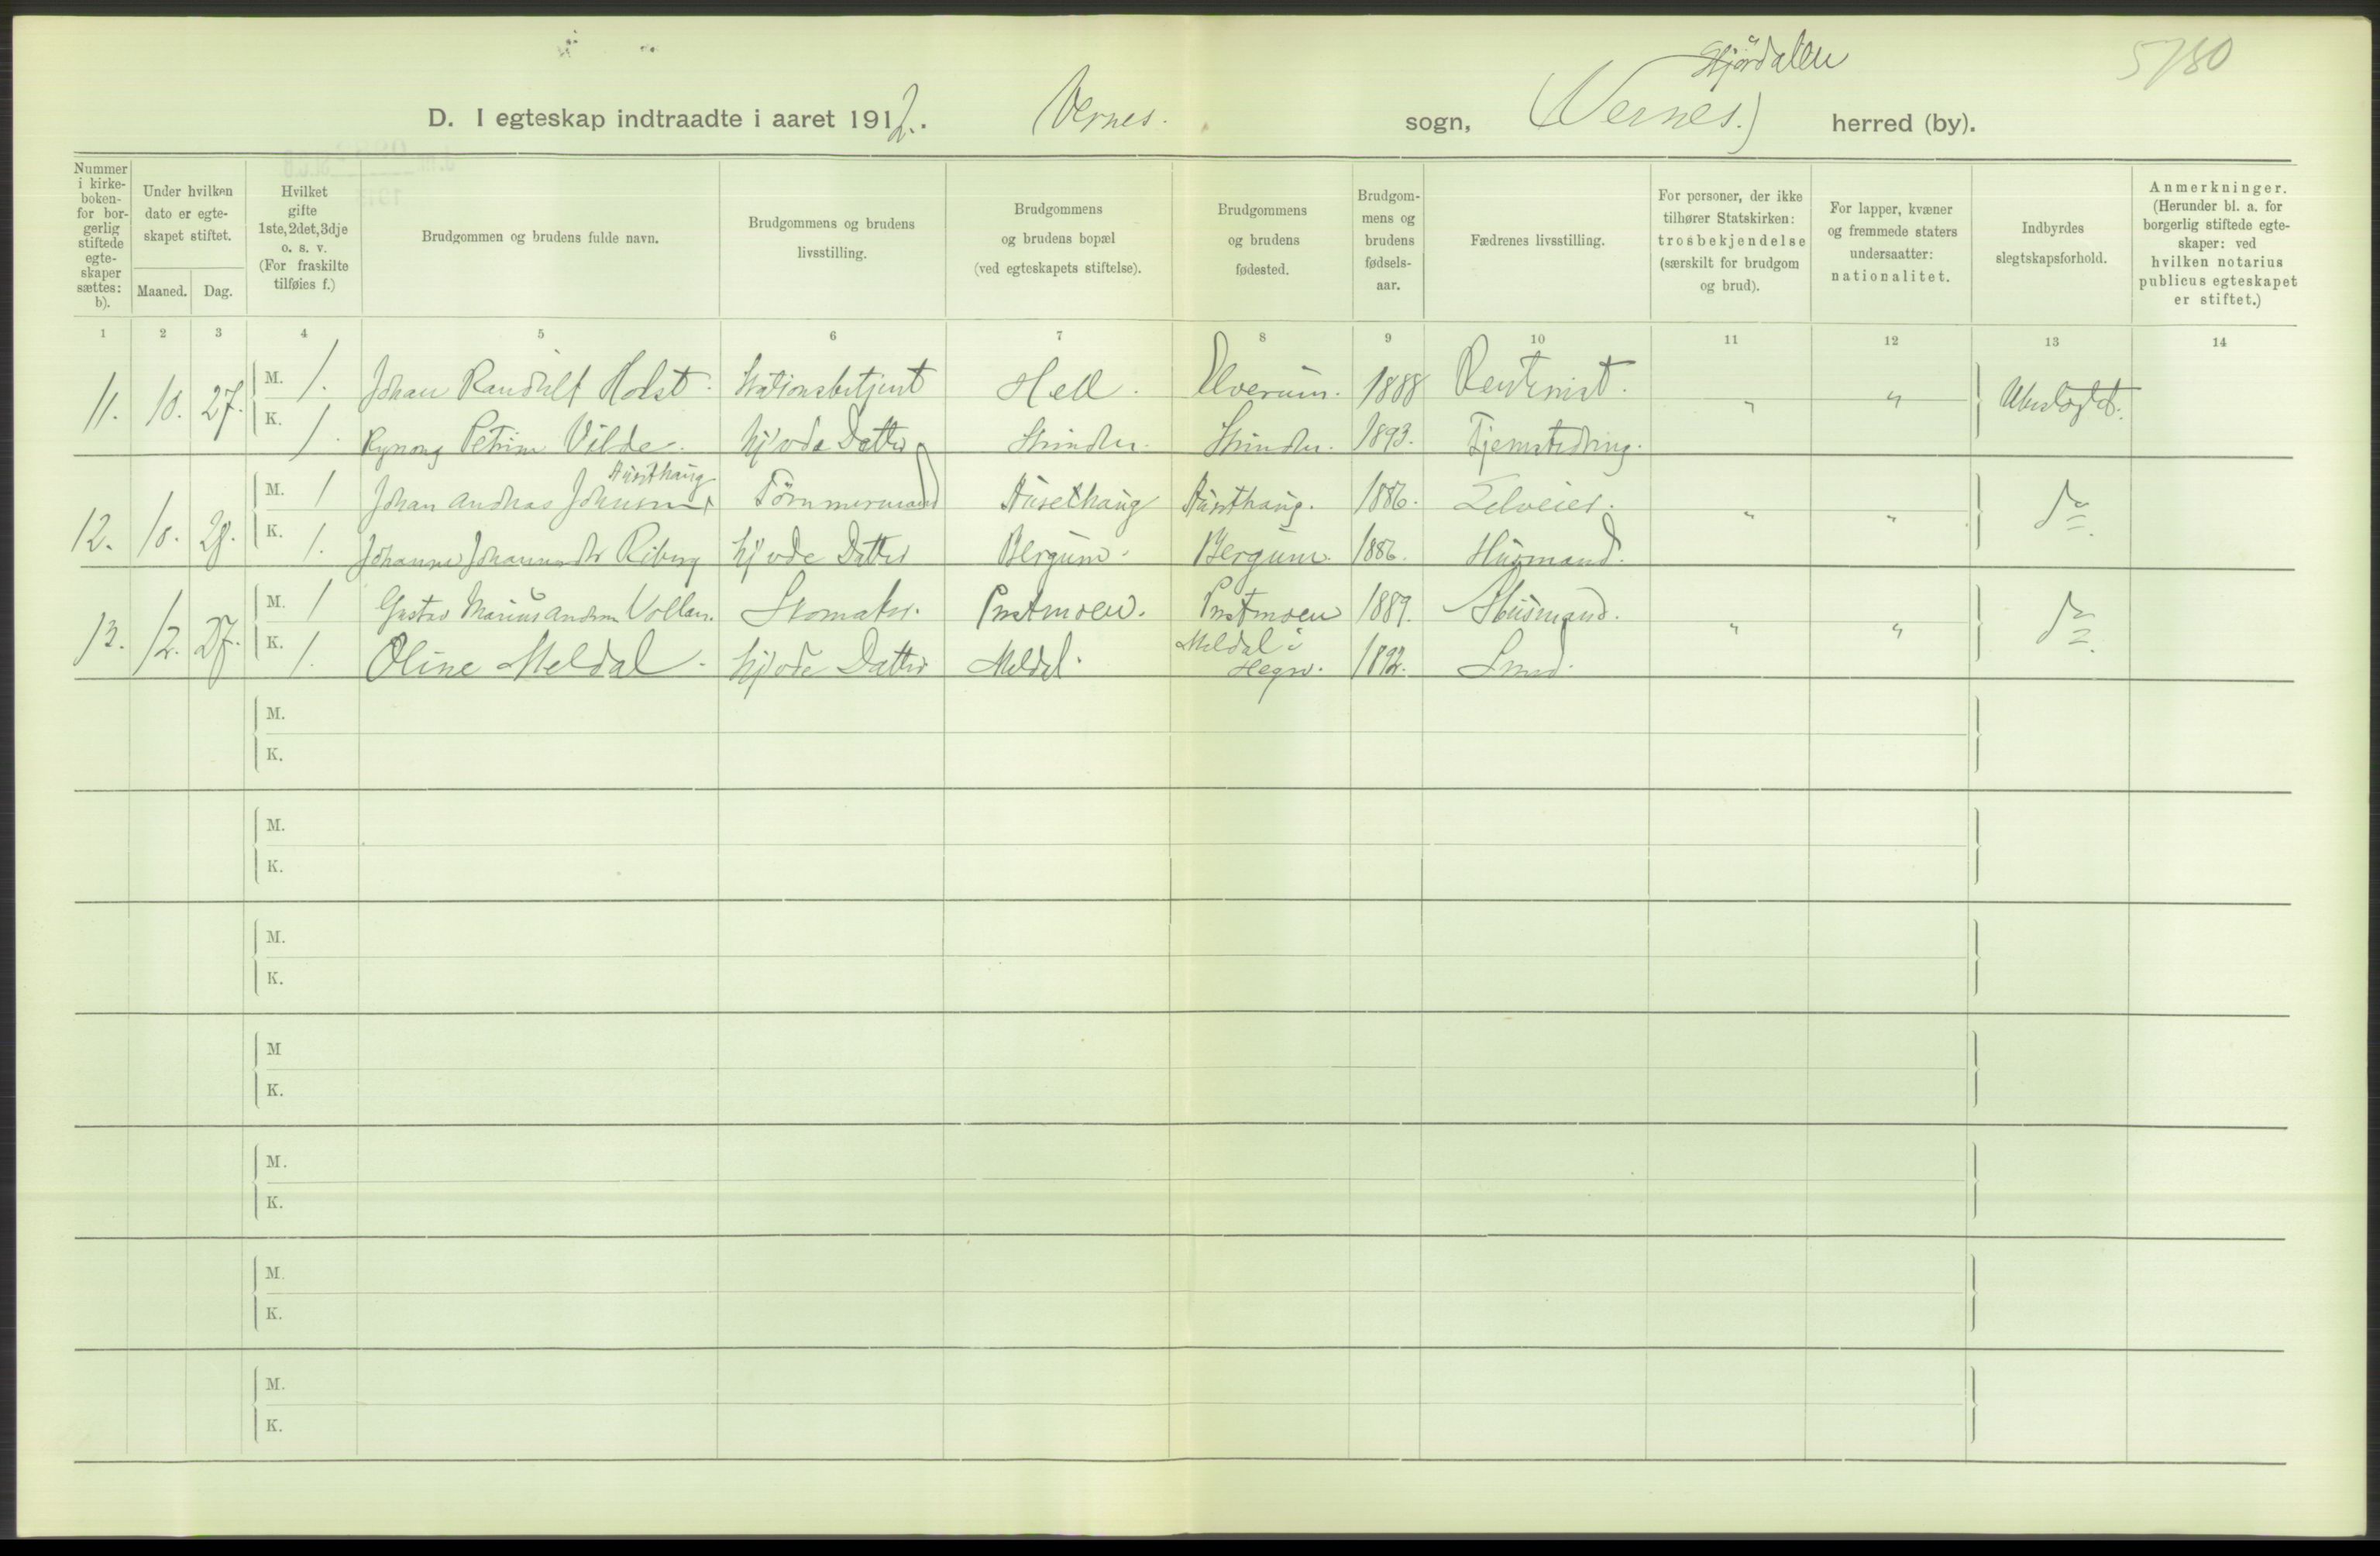 Stjørdalen
5780
D. I egteskap indtraadte i aaret 1912. Vernes. sogn, (Vernes.) herred (by).
Nummer i kirke-boken- for bor-gerlig stiftede egte-skaper sættes: b).
Under hvilken dato er egte-skapet stiftet.
Maaned. Dag.
Hvilket gifte 1ste, 2det, 3dje o. s. v. (For fraskilte tilføies f.)
Brudgommen og brudens fulde navn.
Brudgommens og brudens livsstilling.
Brudgommens og brudens bopæl (ved egteskapets stiftelse).
Brudgommens og brudens fødested.
Brudgom-mens og brudens fødsels-aar.
Fædrenes livsstilling.
For personer, der ikke tilhører Statskirken: trosbekjendelse (særskilt for brudgom og brud).
For lapper, kvæner og fremmede staters undersaatter: nationalitet.
Indbyrdes slegtskapsforhold.
Anmerkninger. (Herunder bl. a. for borgerlig stiftede egte-skaper: ved hvilken notarius publicus egteskapet er stiftet.)
1 2 3 4 5 6 7 8 9 10 11 12 13 14
11. 10. 27. M. 1. Johan Randulf Holst. Stationsbetjent Hell. Elverum. 1888 Rentenist. " " Ubeslægtet.
K. 1. Petrine Vilde. Hj. vde Datter Strinden. Strinden. 1893.
Austhaug
12. 10. 29. M. 1 Johan Andreas Johnsen Tømmermand Austhaug. 1886. Selveier. " " Do
K. 1. Johanne Riberg Hj. vde Datter Bergum. Bergum. 1886. Husmand.
13. 12. 27. M. 1 Gustav Marius Andersen Vollan. Skomaker. Prestmoen. Prestmoen 1889. Husmand. " " Do
K. 1. Oline Meldal. Hj. vde Datter Meldal. Meldal i Hegra. 1892. Smed.
M.
K.
M.
K.
M.
K.
M
K.
M.
K.
M.
K.
M.
K.